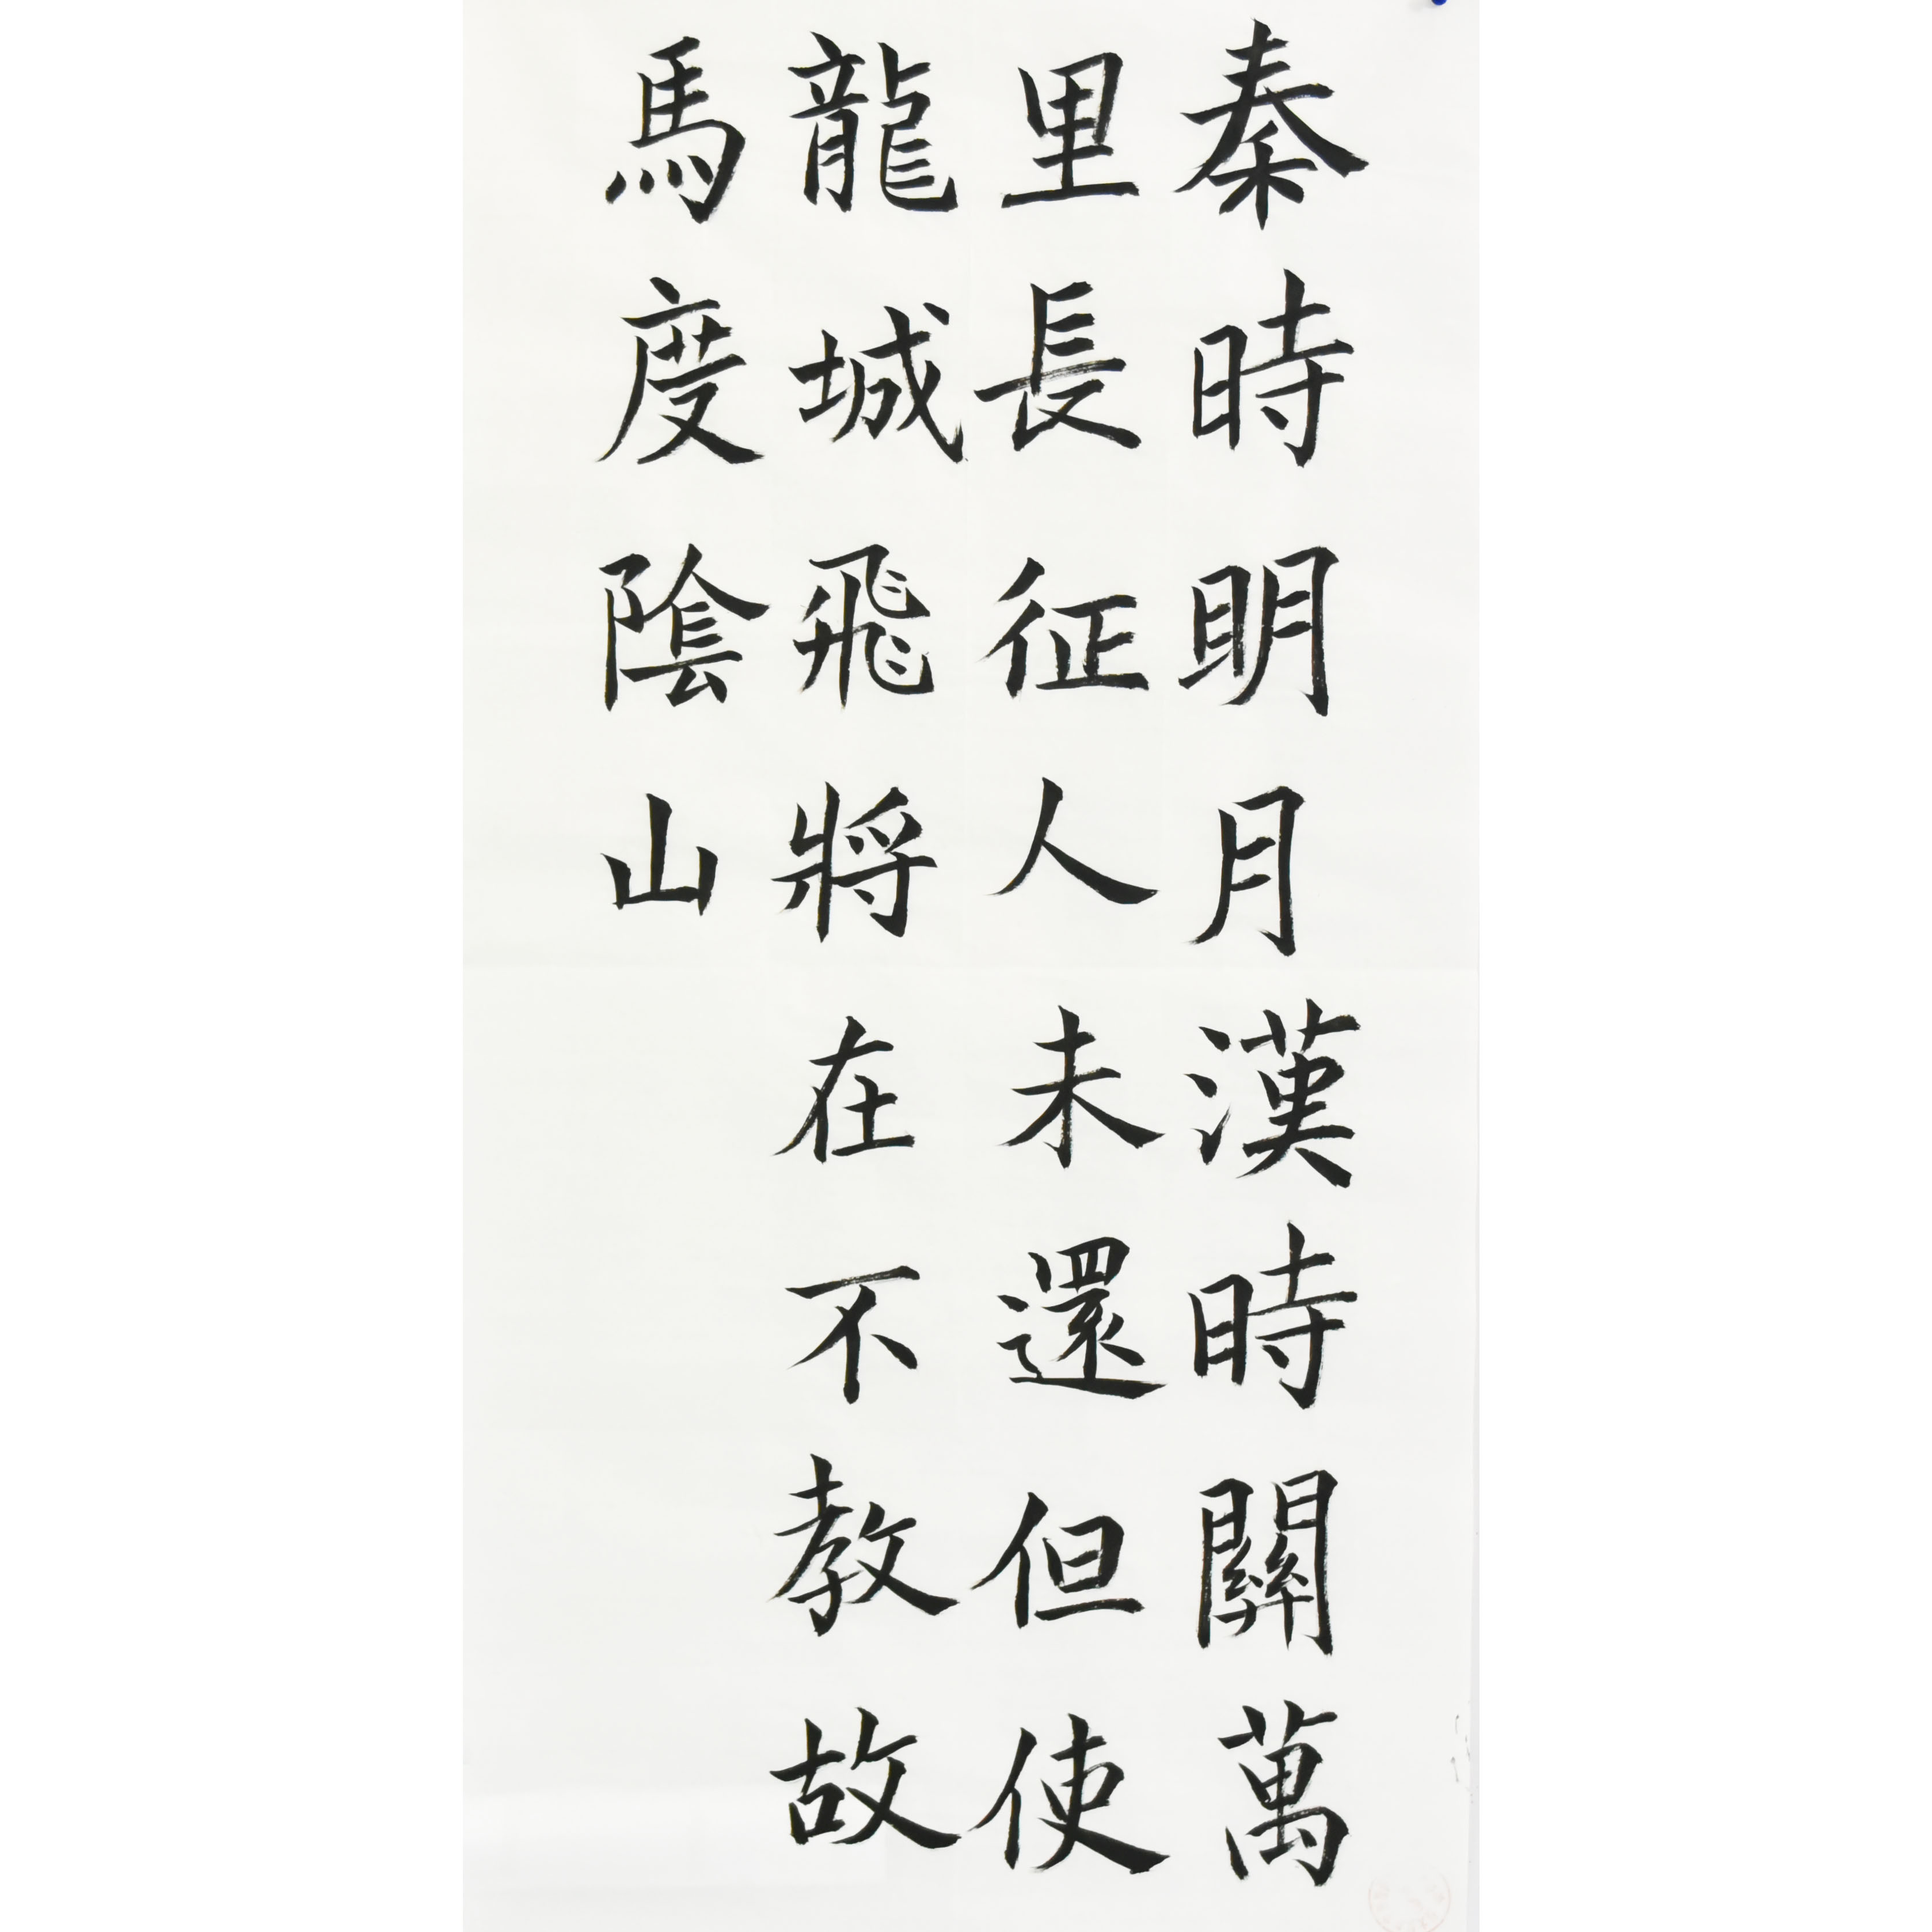 秦時明月漢時關萬
里長征人未還但使
龍城飛將在不教故
馬度陰山